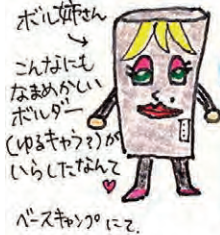 ボル姉さん
こんなにも
なまめかしい
ボルダー
(ゆるキャラ?)が
いらしたなんて
ベースキャンプにて。